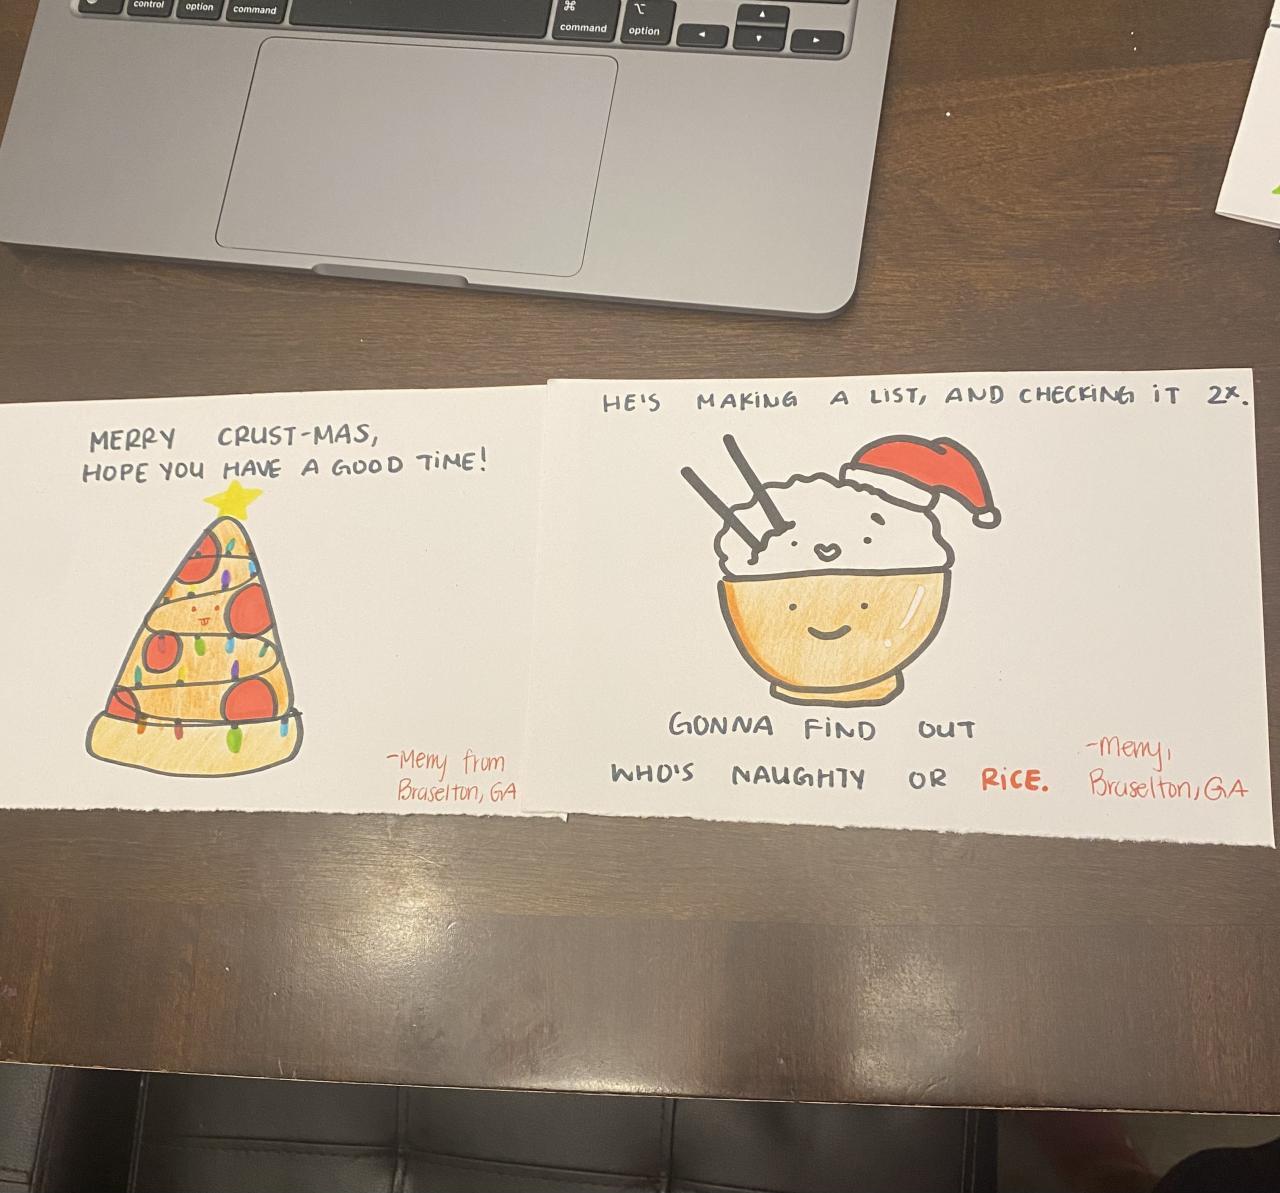 control
option
command
⌘
command
⌥
option
MERRY CRUST-MAS,
HOPE YOU HAVE A GOOD TiME!
-Merry from
Braselton, GA
HE'S MAKiNG A LiST, AND CHECKiNG iT 2x.
GONNA FiND OUT
WHO'S NAUGHTY OR RiCE.
-Merry,
Braselton, GA